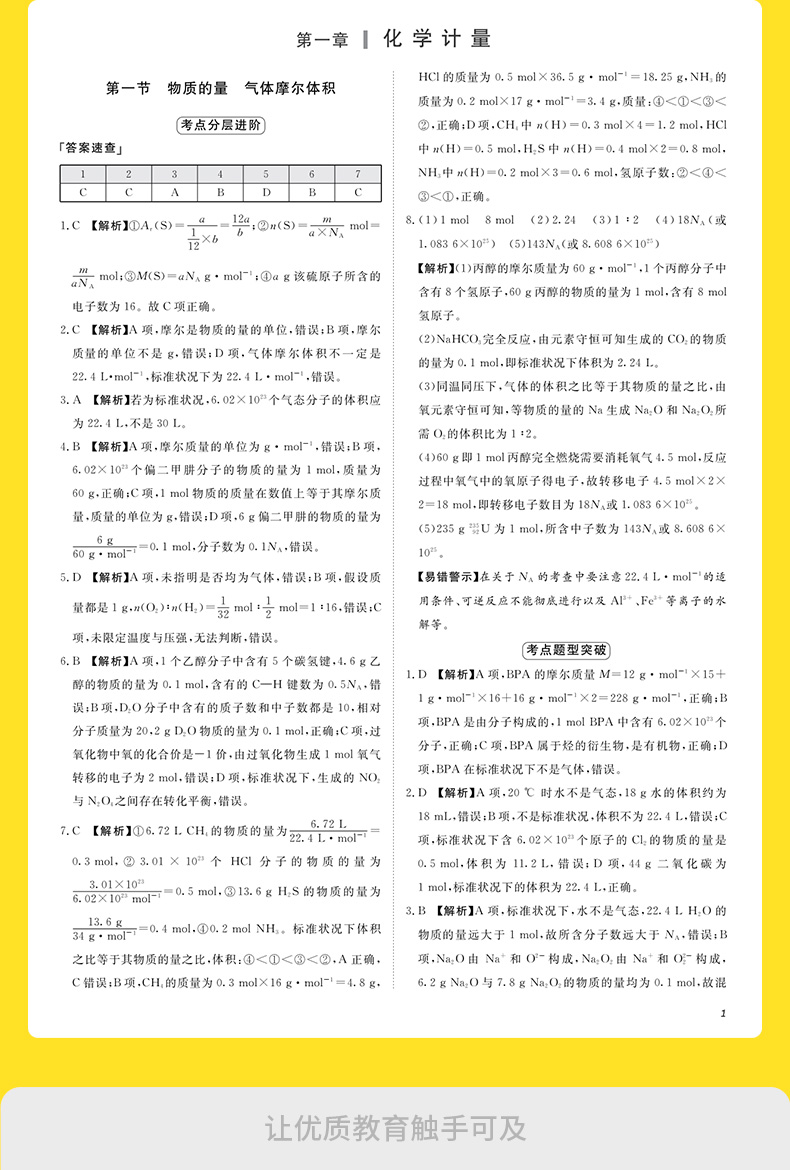 第一章 化学计量
第一节 物质的量 气体摩尔体积
考点分层进阶
「答案速查」
1 2 3 4 5 6 7
C C A B D B C
1.C 【解析】①Aᵣ(S)=a/(1/12×b)=12a/b;②n(S)=m/(a×N_A) mol=
m/(aN_A) mol;③M(S)=aN_A g·mol⁻¹;④a g该硫原子所含的
电子数为16。故C项正确。
2.C 【解析】A项,摩尔是物质的量的单位,错误;B项,摩尔
质量的单位不是g,错误;D项,气体摩尔体积不一定是
22.4 L·mol⁻¹,标准状况下为22.4 L·mol⁻¹,错误。
3.A 【解析】若为标准状况,6.02×10²³个气态分子的体积应
为22.4 L,不是30 L。
4.B 【解析】A项,摩尔质量的单位为g·mol⁻¹,错误;B项,
6.02×10²³个偏二甲肼分子的物质的量为1 mol,质量为
60 g,正确;C项,1 mol物质的质量在数值上等于其摩尔质
量,质量的单位为g,错误;D项,6 g偏二甲肼的物质的量为
6 g/(60 g·mol⁻¹)=0.1 mol,分子数为0.1N_A,错误。
5.D 【解析】A项,未指明是否均为气体,错误;B项,假设质
量都是1 g,n(O₂)∶n(H₂)=1/32 mol∶1/2 mol=1∶16,错误;C
项,未限定温度与压强,无法判断,错误。
6.B 【解析】A项,1个乙醇分子中含有5个碳氢键,4.6 g乙
醇的物质的量为0.1 mol,含有的C—H键数为0.5N_A,错
误;B项,D₂O分子中含有的质子数和中子数都是10,相对
分子质量为20,2 g D₂O物质的量为0.1 mol,正确;C项,过
氧化物中氧的化合价是−1价,由过氧化物生成1 mol氧气
转移的电子为2 mol,错误;D项,标准状况下,生成的NO₂
与N₂O₄之间存在转化平衡,错误。
7.C 【解析】①6.72 L CH₄的物质的量为6.72 L/(22.4 L·mol⁻¹)=
0.3 mol,②3.01×10²³个HCl分子的物质的量为
3.01×10²³/(6.02×10²³ mol⁻¹)=0.5 mol,③13.6 g H₂S的物质的量为
13.6 g/(34 g·mol⁻¹)=0.4 mol,④0.2 mol NH₃。标准状况下体积
之比等于其物质的量之比,体积:④<①<③<②,A正确,
C错误;B项,CH₄的质量为0.3 mol×16 g·mol⁻¹=4.8 g,
HCl的质量为0.5 mol×36.5 g·mol⁻¹=18.25 g,NH₃的
质量为0.2 mol×17 g·mol⁻¹=3.4 g,质量:④<①<③<
②,正确;D项,CH₄中n(H)=0.3 mol×4=1.2 mol,HCl
中n(H)=0.5 mol,H₂S中n(H)=0.4 mol×2=0.8 mol,
NH₃中n(H)=0.2 mol×3=0.6 mol,氢原子数:②<④<
③<①,正确。
8.(1)1 mol 8 mol (2)2.24 (3)1∶2 (4)18N_A(或
1.083 6×10²⁵) (5)143N_A(或8.608 6×10²⁵)
【解析】(1)丙醇的摩尔质量为60 g·mol⁻¹,1个丙醇分子中
含有8个氢原子,60 g丙醇的物质的量为1 mol,含有8 mol
氢原子。
(2)NaHCO₃完全反应,由元素守恒可知生成的CO₂的物质
的量为0.1 mol,即标准状况下体积为2.24 L。
(3)同温同压下,气体的体积之比等于其物质的量之比,由
氧元素守恒可知,等物质的量的Na生成Na₂O和Na₂O₂所
需O₂的体积比为1∶2。
(4)60 g即1 mol丙醇完全燃烧需要消耗氧气4.5 mol,反应
过程中氧气中的氧原子得电子,故转移电子4.5 mol×2×
2=18 mol,即转移电子数目为18N_A或1.083 6×10²⁵。
(5)235 g ²³⁵₉₂U为1 mol,所含中子数为143N_A或8.608 6×
10²⁵。
【易错警示】在关于N_A的考查中要注意22.4 L·mol⁻¹的适
用条件、可逆反应不能彻底进行以及Al³⁺、Fe³⁺等离子的水
解等。
考点题型突破
1.D 【解析】A项,BPA的摩尔质量M=12 g·mol⁻¹×15+
1 g·mol⁻¹×16+16 g·mol⁻¹×2=228 g·mol⁻¹,正确;B
项,BPA是由分子构成的,1 mol BPA中含有6.02×10²³个
分子,正确;C项,BPA属于烃的衍生物,是有机物,正确;D
项,BPA在标准状况下不是气体,错误。
2.D 【解析】A项,20 ℃时水不是气态,18 g水的体积约为
18 mL,错误;B项,不是标准状况,体积不为22.4 L,错误;C
项,标准状况下含6.02×10²³个原子的Cl₂的物质的量是
0.5 mol,体积为11.2 L,错误;D项,44 g二氧化碳为
1 mol,标准状况下的体积为22.4 L,正确。
3.B 【解析】A项,标准状况下,水不是气态,22.4 L H₂O的
物质的量远大于1 mol,故所含分子数远大于N_A,错误;B
项,Na₂O由Na⁺和O²⁻构成,Na₂O₂由Na⁺和O₂²⁻构成,
6.2 g Na₂O与7.8 g Na₂O₂的物质的量均为0.1 mol,故混
1
让优质教育触手可及